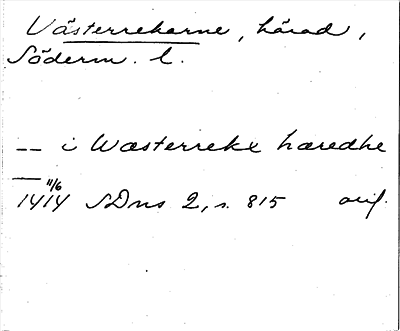 Västerrekarne, härad,
Söderm. l.
-- i Wæsterrekæ hæredhe
— 11/6
1414 SDns 2, s. 815 orig.